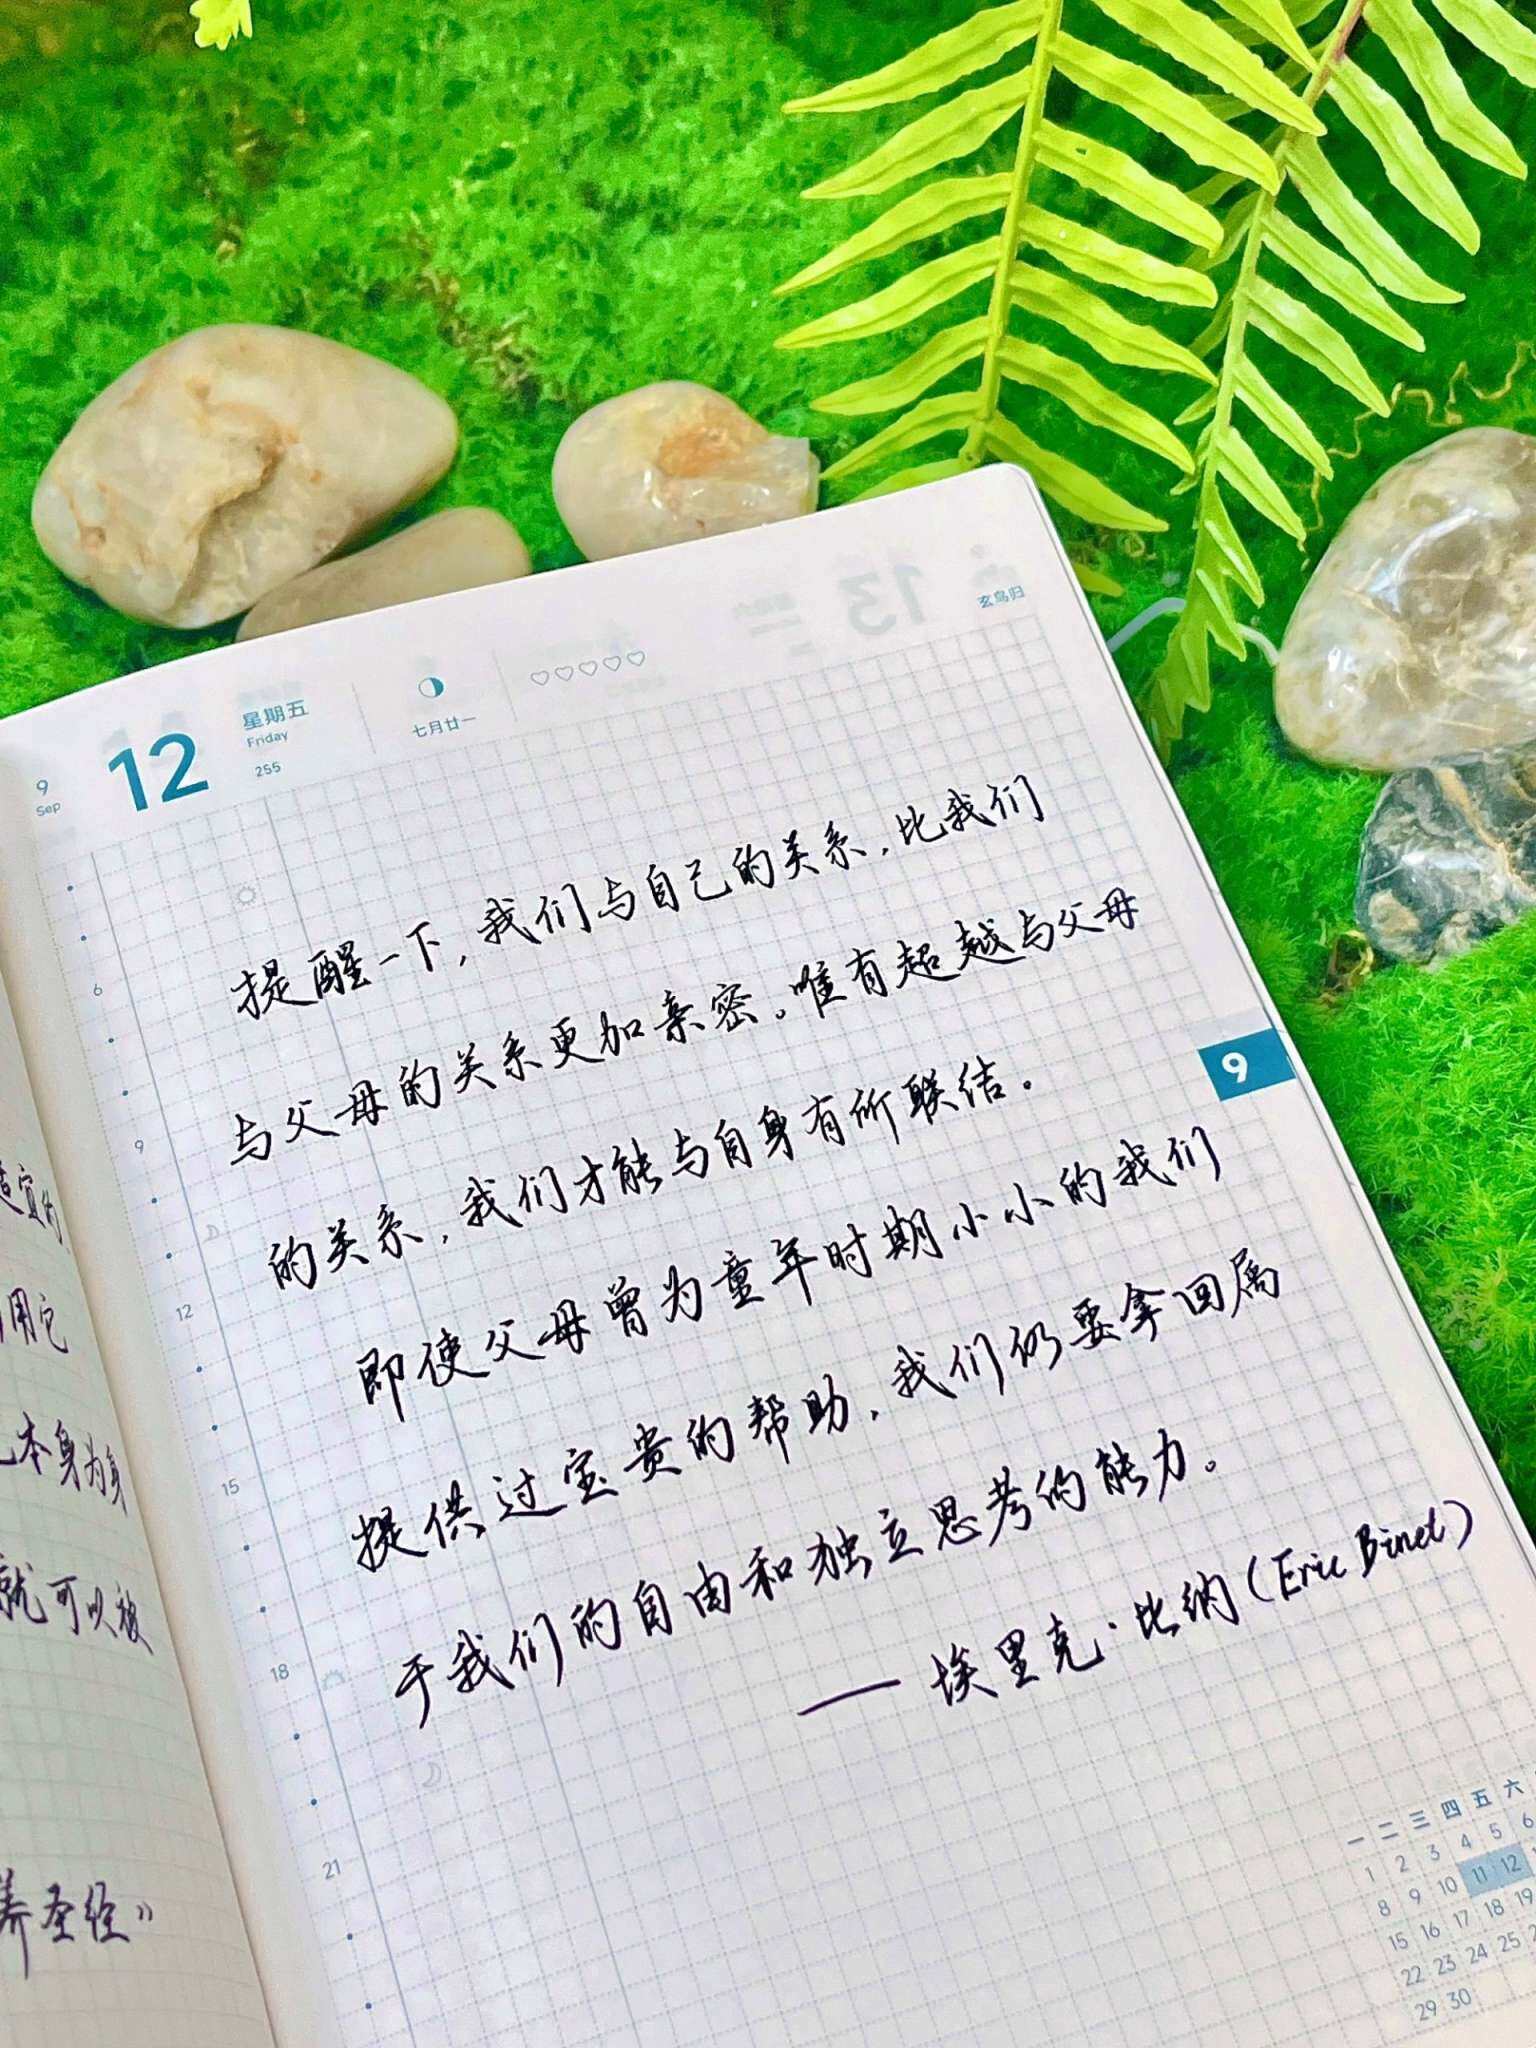 9
Sep
12
星期五
Friday
255
七月廿一
♡♡♡♡♡
13
玄鸟归
提醒一下，我们与自己的关系，比我们
与父母的关系更加亲密。唯有超越与父母
的关系，我们才能与自身有所联结。
即使父母曾为童年时期小小的我们
提供过宝贵的帮助，我们仍要拿回属
于我们的自由和独立思考的能力。
——埃里克·比纳（Eric Binet）
6
9
12
15
18
21
9
一 二 三 四 五 六
1 2 3 4 5 6
8 9 10 11 12
15 16 17 18 19
22 23 24 25
29 30
用它
本身为身
就可以被
养圣经》